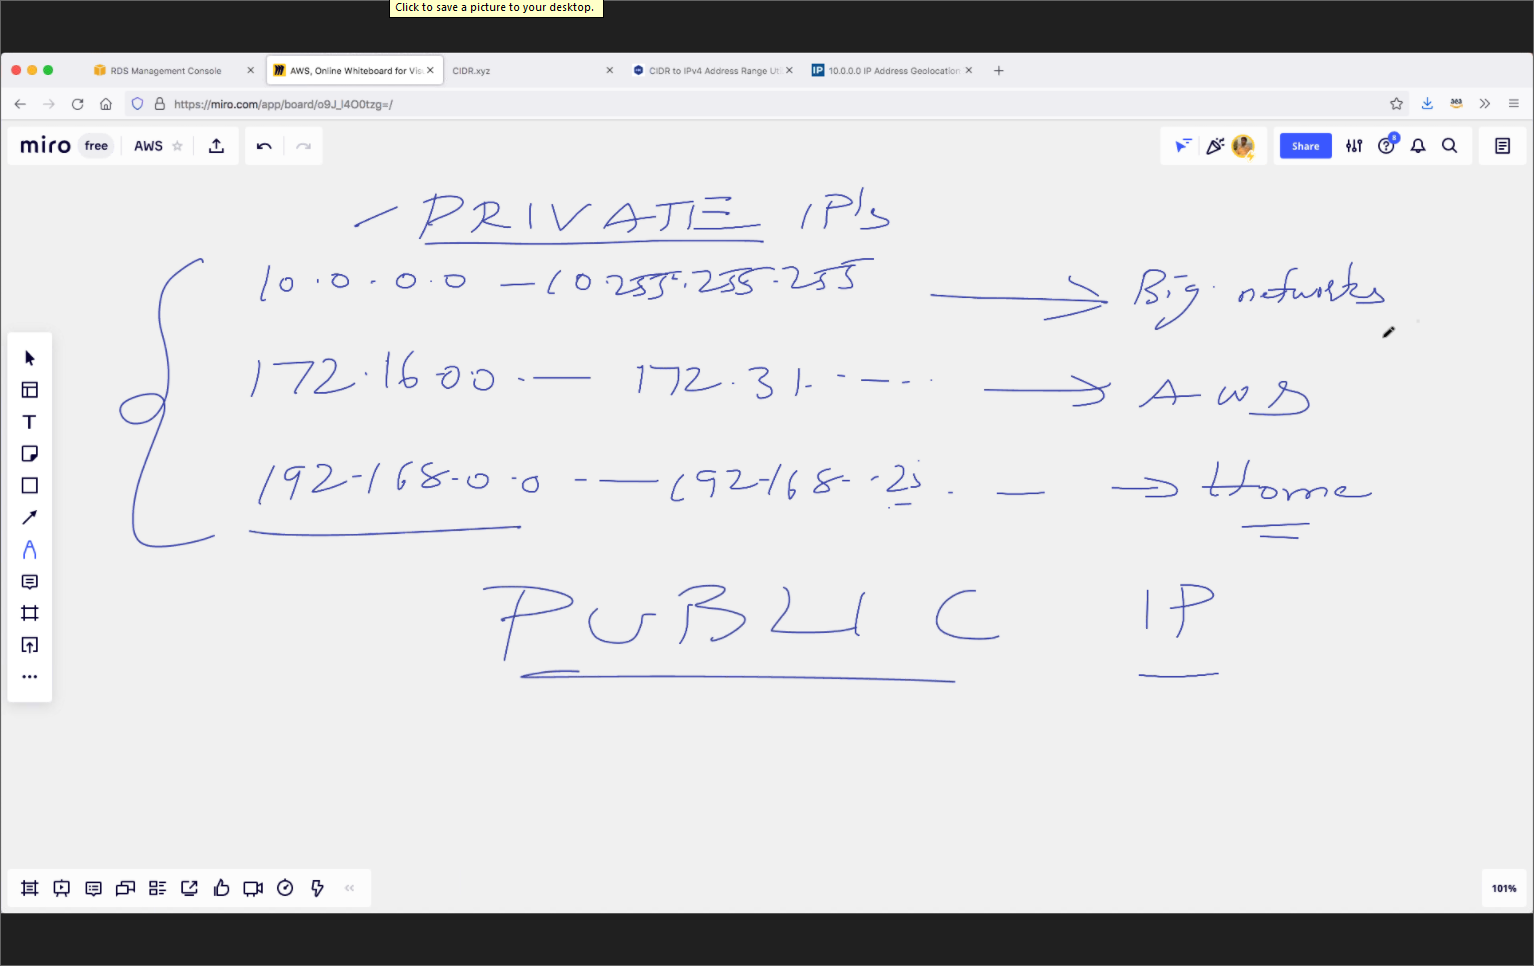 Click to save a picture to your desktop.
RDS Management Console
AWS, Online Whiteboard for Vis
CIDR.xyz
CIDR to IPv4 Address Range Ut
IP 10.0.0.0 IP Address Geolocation
https://miro.com/app/board/o9J_l4O0tzg=/
miro free AWS
Share
8
PRIVATE IP's
10.0.0.0 — 10.255.255.255 → Big networks
172.16.0.0 - — 172.31. - - - → AWS
192-168-0.0 - — 192-168- - 25 . — → Home
PUBLIC IP
101%